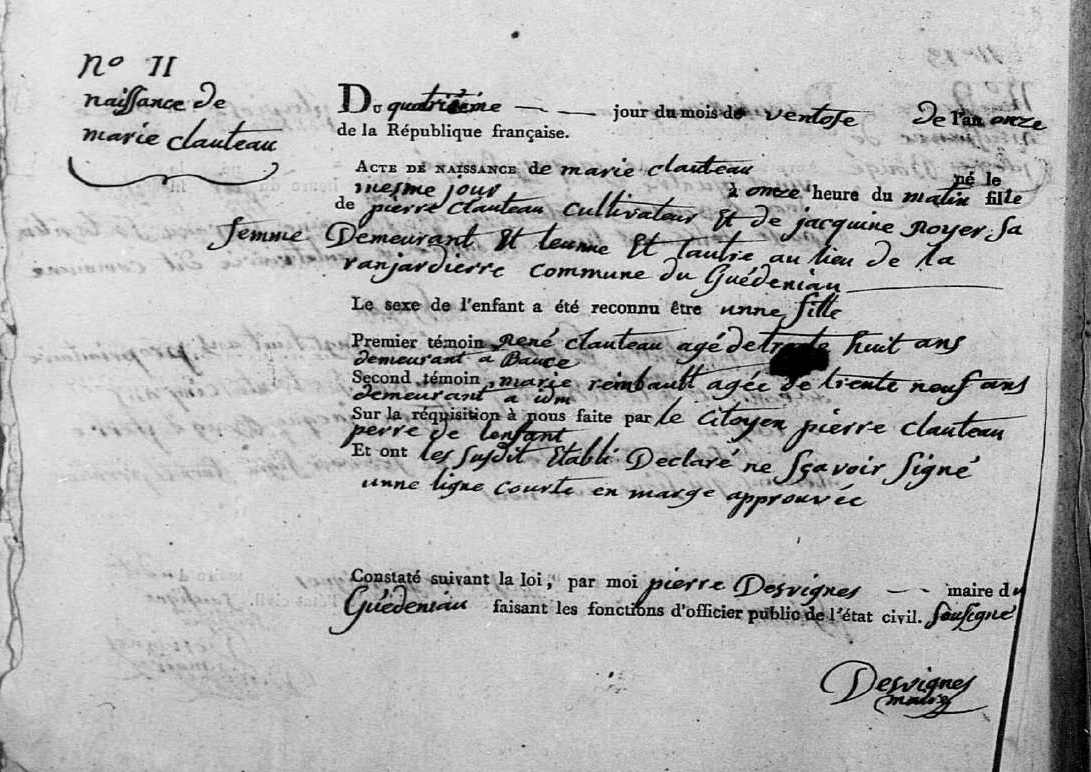 no II
naissance de
marie clauteau
Du quatrième jour du mois de ventose de l'an onze
de la République française.
ACTE DE NAISSANCE de marie clauteau né le
mesme jour à onze heure du matin fille
de pierre clauteau cultivateur Et de jacquine Royer sa
femme Demeurant Et leunne Et lautre au lieu de la
ranjardierre commune du Guédeniau
Le sexe de l'enfant a été reconnu être unne fille
Premier témoin René clauteau agé de trente huit ans
demeurant a Bauce
Second témoin marie reimbault agée de trente neuf ans
demeurant a idm
Sur la réquisition à nous faite par le Citoyen pierre clauteau
perre de lenfant
Et ont les susdit Etabli Declaré ne sçavoir signé
unne ligne courte en marge approuvée
Constaté suivant la loi, par moi pierre Desvignes maire du
Guédeniau faisant les fonctions d'officier public de l'état civil. sousigné
Desvignes
maire